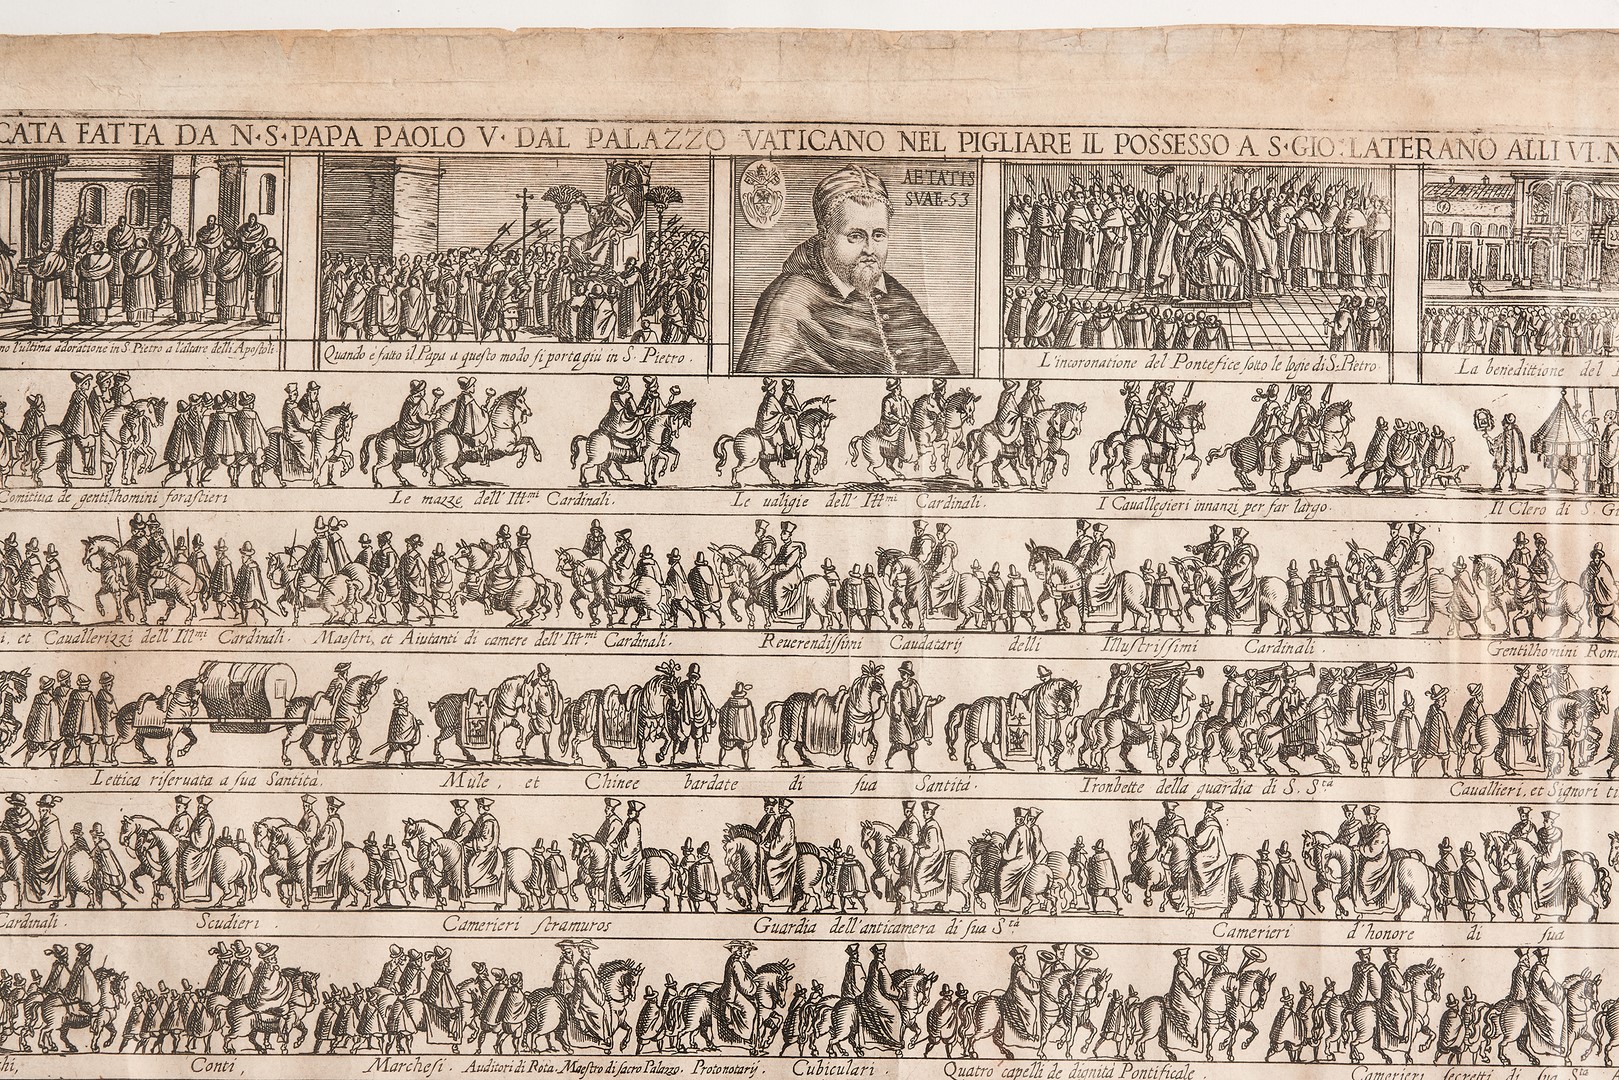 CATA FATTA DA N·S·PAPA PAOLO V· DAL PALAZZO VATICANO NEL PIGLIARE IL POSSESSO A S·GIO: LATERANO ALLI VI·N
AETATIS
SVAE·53
no l'ultima adoratione in S. Pietro a l'altare delli Apostoli
Quando è fatto il Papa a questo modo si porta giù in S. Pietro.
L'incoronatione del Pontefice sotto le logie di S. Pietro
La benedittione del
Comitiua de gentilhomini forastieri
Le mazze dell' Ill.mi Cardinali.
Le ualigie dell' Ill.mi Cardinali.
I Cauallegieri innanzi per far largo.
Il Clero di S. Gi
i, et Cauallerizzi dell' Ill.mi Cardinali.
Maestri, et Aiutanti di camere dell' Ill.mi Cardinali.
Reuerendissimi Caudatarij delli Illustrissimi Cardinali.
Gentilhomini Rom
Lettica riseruata a sua Santità.
Mule, et Chinee bardate di sua Santità.
Trombette della guardia di S. S.tà
Cauallieri, et Signori ti
Cardinali.
Scudieri.
Camerieri stramuros
Guardia dell'anticamera di sua S.tà
Camerieri d'honore di sua
hi,
Conti,
Marchesi.
Auditori di Rota. Maestro di sacro Palazzo. Protonotarij.
Cubiculari.
Quatro capelli de dignità Pontificale.
Camerieri secretti di sua S.tà